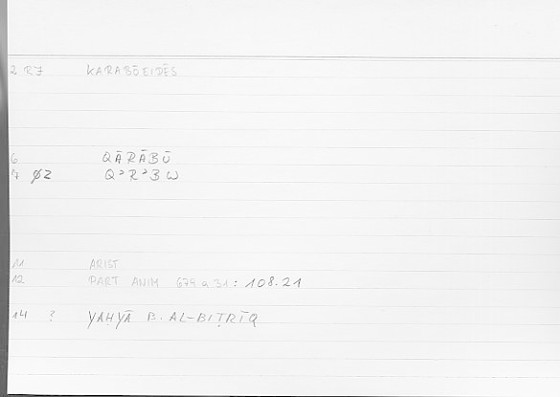 2 RJ KARABŌEIDĒS
6 QĀRĀBŪ
7 ØZ Q²R²BW
11 ARIST
12 PART ANIM 679 a 31: 108.21
14 ? YAḤYĀ B. AL-BIṬRĪQ